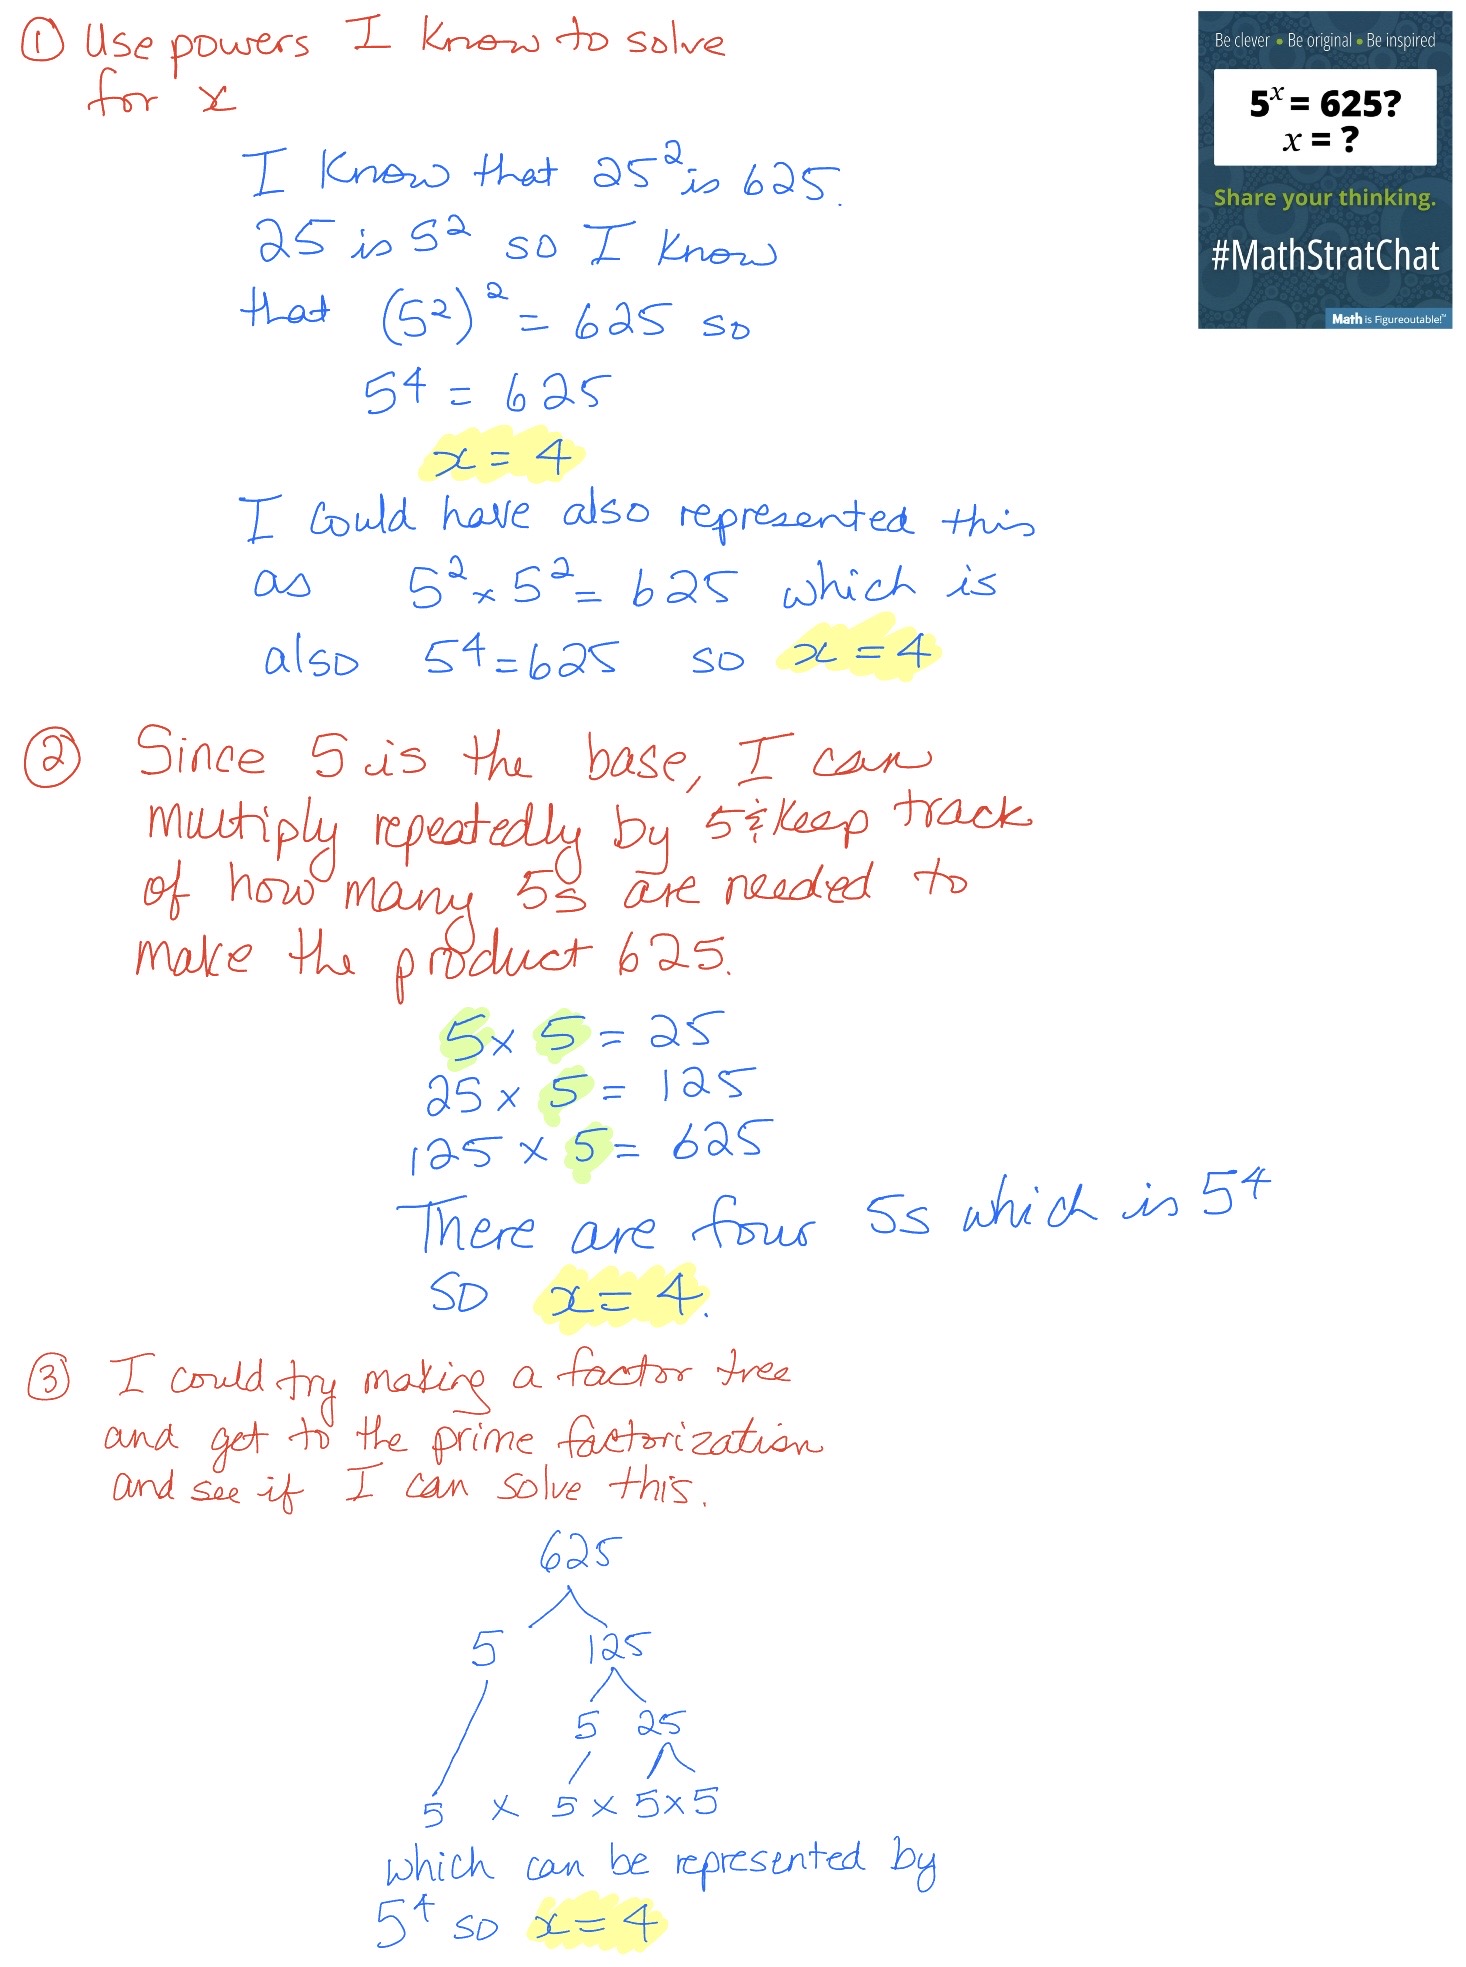 ① Use powers I know to solve
for x
I know that 25² is 625.
25 is 5² so I know
that (5²)² = 625 so
5⁴ = 625
x = 4
I could have also represented this
as 5² × 5² = 625 which is
also 5⁴ = 625 so x = 4
② Since 5 is the base, I can
multiply repeatedly by 5 & keep track
of how many 5s are needed to
make the product 625.
5 × 5 = 25
25 × 5 = 125
125 × 5 = 625
There are four 5s which is 5⁴
so x = 4.
③ I could try making a factor tree
and get to the prime factorization
and see if I can solve this.
625
5 125
5 25
5 × 5 × 5 × 5
which can be represented by
5⁴ so x = 4
Be clever • Be original • Be inspired
5ˣ = 625?
x = ?
Share your thinking.
#MathStratChat
Math is Figureoutable!™